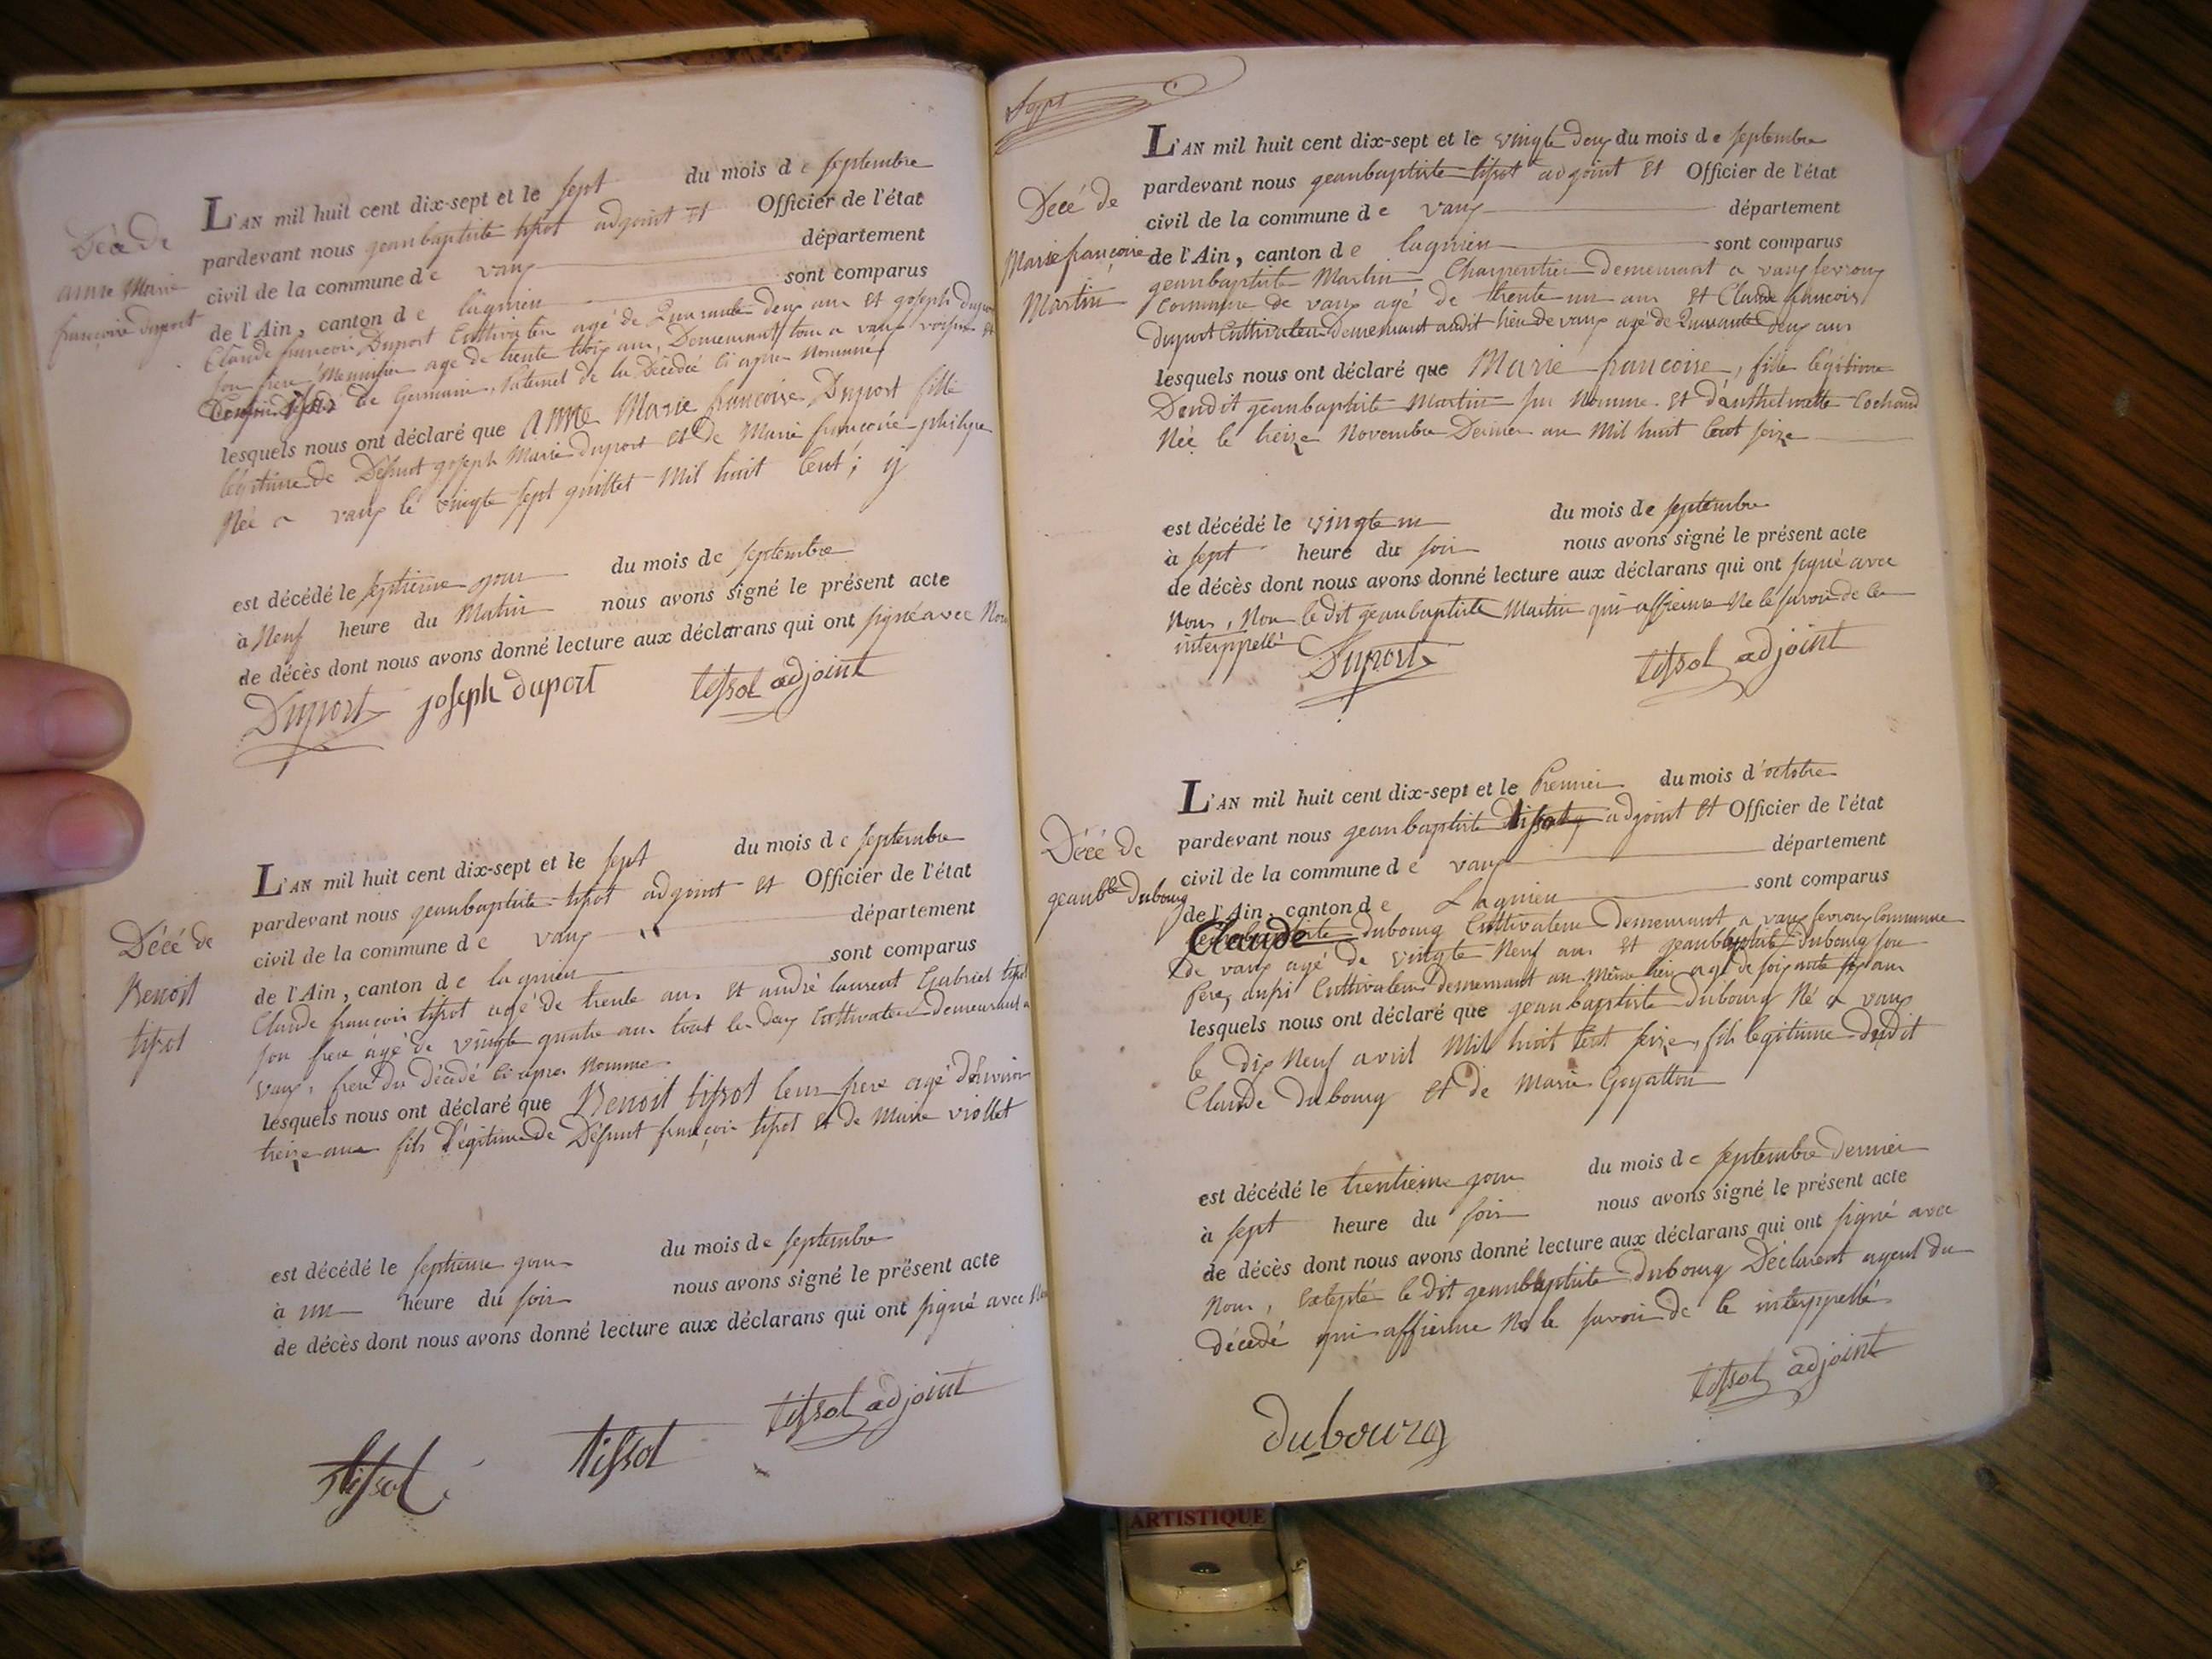 Décé de
anne Marie
françoise duport
L'AN mil huit cent dix-sept et le sept du mois de septembre
pardevant nous geanbaptiste tissot adjoint et Officier de l'état
civil de la commune de vaux département
de l'Ain, canton de lagnieu sont comparus
Claude françois Duport Cultivateur agé de Quarante deux ans et joseph duport
son frere Menuisier age de trente trois ans, Demeurant tous a vaux voisins et
Cousin de Germain, Paternel de la Décédée Ci apres Nommée
lesquels nous ont déclaré que anne Marie francoise Duport fille
légitime de Défunt joseph Marie duport et de Marie francoise philipe
Née a vaux le vingte sept guillet Mil huit Cent; ij
est décédé le septieme jour du mois de septembre
à Neuf heure du Matin nous avons signé le présent acte
de décès dont nous avons donné lecture aux déclarans qui ont signé avec Nou
Duport joseph duport tissot adjoint
Décé de
Benoit
tissot
L'AN mil huit cent dix-sept et le sept du mois de septembre
pardevant nous geanbaptiste tissot adjoint et Officier de l'état
civil de la commune de vaux département
de l'Ain, canton de lagnieu sont comparus
Claude francois tissot agé de trente ans et andré laurent Gabriel tissot
son frere agé de vingte quatre ans tout les deux Cultivateur demeurant a
vaux, frere du décédé Ci apres Nomme
lesquels nous ont déclaré que Benoit tissot leur frere agé d'environ
treize ans fils légitime de Défunt françois tissot et de Marie viollet
est décédé le septieme jour du mois de septembre
à un heure du soir nous avons signé le présent acte
de décès dont nous avons donné lecture aux déclarans qui ont signé avec Nou
tissot tissot tissot adjoint
Décé de
Marie françoise
Martin
L'AN mil huit cent dix-sept et le vingte deux du mois de septembre
pardevant nous geanbaptiste tissot adjoint et Officier de l'état
civil de la commune de vaux département
de l'Ain, canton de lagnieu sont comparus
geanbaptiste Martin Charpentier demeurant a vaux fevroux
Commune de vaux agé de trente un ans et Claude francois
duport Cultivateur demeurant audit lieu de vaux agé de Quarante deux ans
lesquels nous ont déclaré que Marie francoise, fille légitime
Dudit geanbaptiste Martin sus Nommé et d'anthelmette Cochand
Née le treize Novembre Dernier an Mil huit Cent seize
est décédé le vingte un du mois de septembre
à sept heure du soir nous avons signé le présent acte
de décès dont nous avons donné lecture aux déclarans qui ont signé avec
Nous, Non le dit geanbaptiste Martin qui affirme Ne le savoir de ce
interppellé
Duport tissot adjoint
Décé de
geanbte Dubourg
L'AN mil huit cent dix-sept et le Premier du mois d'octobre
pardevant nous geanbaptiste tissot adjoint et Officier de l'état
civil de la commune de vaux département
de l'Ain, canton de Lagnieu sont comparus
Claude dubourg Cultivateur demeurant a vaux fevroux Commune
de vaux agé de vingte Neuf ans et geanbaptiste Dubourg son
Pere, aussi Cultivateur demeurant au Même lieu agé de soixante six ans
lesquels nous ont déclaré que geanbaptiste dubourg Né a vaux
le dix Neuf avril Mil huit Cent seize, fils legitime dudit
Claude dubourg et de Marie Goyatton
est décédé le trentieme jour du mois de septembre dernier
à sept heure du soir nous avons signé le présent acte
de décès dont nous avons donné lecture aux déclarans qui ont signé avec
Nous, Excepté le dit geanbaptiste Dubourg Déclarent ayeul du
décédé qui affirme Ne le savoir de ce interppellé
dubourg tissot adjoint
ARTISTIQUE